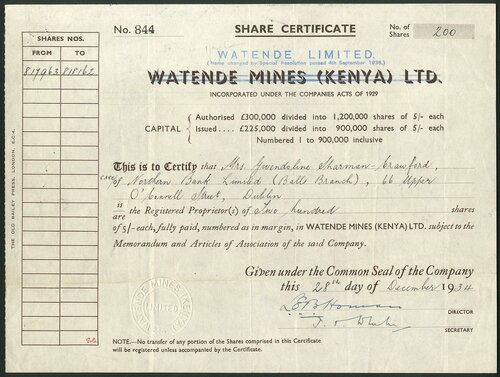 No. 844 SHARE CERTIFICATE No. of Shares 200
SHARES NOS.
FROM TO
817963 818162
WATENDE LIMITED.
(Name changed by Special Resolution passed 4th September 1936.)
WATENDE MINES (KENYA) LTD.
INCORPORATED UNDER THE COMPANIES ACTS OF 1929
CAPITAL { Authorised £300,000 divided into 1,200,000 shares of 5/- each
Issued .... £225,000 divided into 900,000 shares of 5/- each
Numbered 1 to 900,000 inclusive
This is to Certify that Mrs Gwendoline Sharman-Crawford,
care of Northern Bank Limited (Balls Branch), 66 Upper
O'Connell Street, Dublin
is
are the Registered Proprietor(s) of Two hundred shares
of 5/- each, fully paid, numbered as in margin, in WATENDE MINES (KENYA) LTD. subject to the
Memorandum and Articles of Association of the said Company.
Given under the Common Seal of the Company
this 28th day of December 1934
DIRECTOR
SECRETARY
WATENDE MINES (KENYA) LIMITED
NOTE.—No transfer of any portion of the Shares comprised in this Certificate
will be registered unless accompanied by the Certificate.
THE OLD BAILEY PRESS, LONDON, E.C.4.